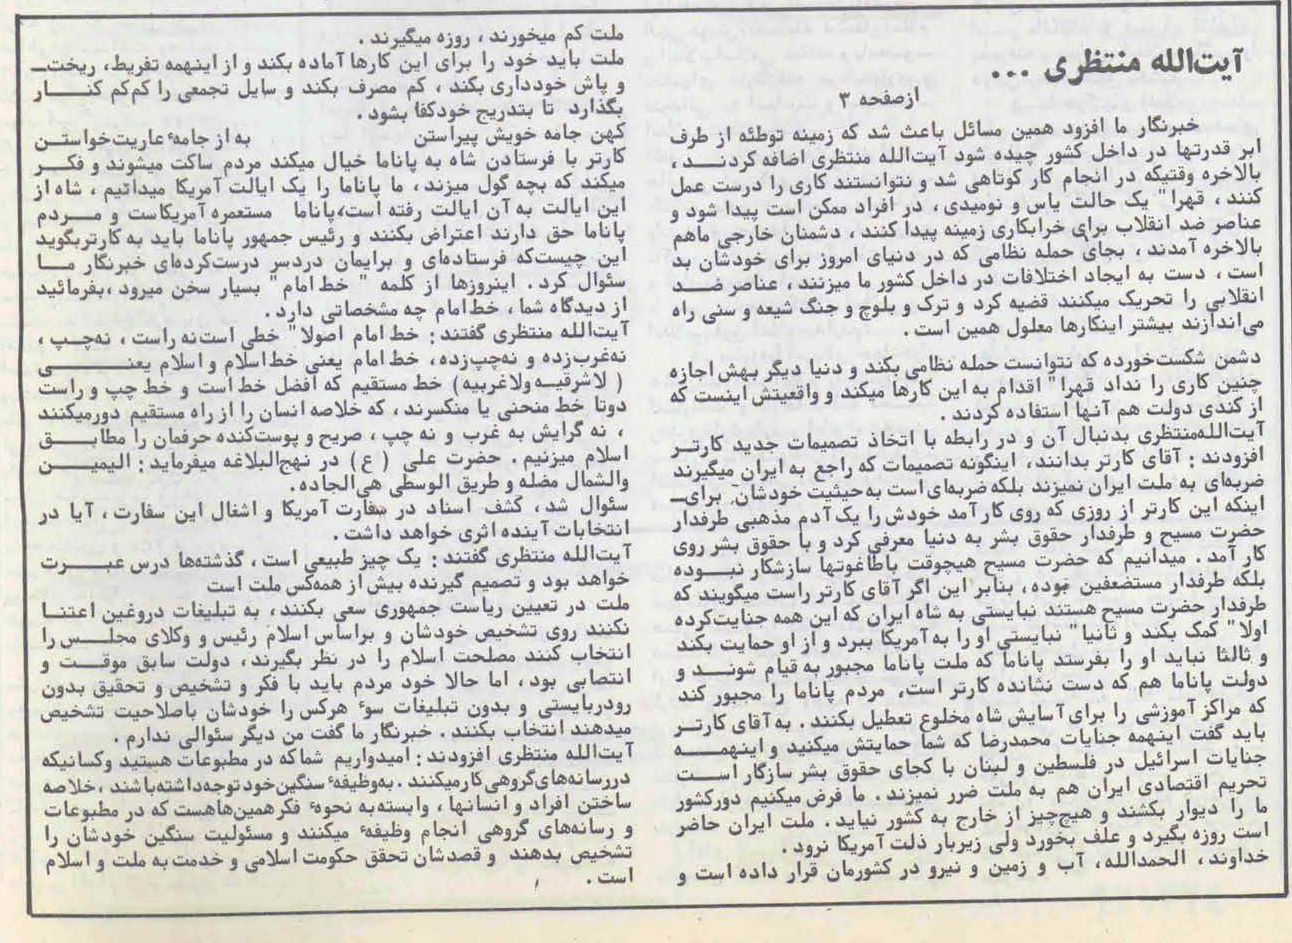 آیت‌الله منتظری ...
ازصفحه ۳
خبرنگار ما افزود همین مسائل باعث شد که زمینه توطئه از طرف
ابر قدرتها در داخل کشور چیده شود آیت‌الله منتظری اضافه کردنـــد ،
بالاخره وقتیکه در انجام کار کوتاهی شد و نتوانستند کاری را درست عمل
کنند ، قهرا" یک حالت یاس و نومیدی ، در افراد ممکن است پیدا شود و
عناصر ضد انقلاب برای خرابکاری زمینه پیدا کنند ، دشمنان خارجی ماهم
بالاخره آمدند ، بجای حمله نظامی که در دنیای امروز برای خودشان بد
است ، دست به ایجاد اختلافات در داخل کشور ما میزنند ، عناصر ضـــد
انقلابی را تحریک میکنند قضیه کرد و ترک و بلوچ و جنگ شیعه و سنی راه
می‌اندازند بیشتر اینکارها معلول همین است .
دشمن شکست‌خورده که نتوانست حمله نظامی بکند و دنیا دیگر بهش اجازه
چنین کاری را نداد قهرا" اقدام به این کارها میکند و واقعیتش اینست که
از کندی دولت هم آنها استفاده کردند .
آیت‌الله‌منتظری بدنبال آن و در رابطه با اتخاذ تصمیمات جدید کارتـــر
افزودند : آقای کارتر بدانند، اینگونه تصمیمات که راجع به ایران میگیرند
ضربه‌ای به ملت ایران نمیزند بلکه ضربه‌ای است به حیثیت خودشان. برای‌ـــ
اینکه این کارتر از روزی که روی کار آمد خودش را یک آدم مذهبی طرفدار
حضرت مسیح و طرفدار حقوق بشر به دنیا معرفی کرد و با حقوق بشر روی
کار آمد . میدانیم که حضرت مسیح هیچوقت باطاغوتها سازشکار نبـــوده
بلکه طرفدار مستضعفین بوده، بنابر این اگر آقای کارتر راست میگویند که
طرفدار حضرت مسیح هستند نبایستی به شاه ایران که این همه جنایت‌کرده
اولا" کمک بکند و ثانیا" نبایستی او را به آمریکا ببرد و از او حمایت بکند
و ثالثا نباید او را بفرستد پاناما که ملت پاناما مجبور به قیام شونـــد و
دولت پاناما هم که دست نشانده کارتر است، مردم پاناما را مجبور کند
که مراکز آموزشی را برای آسایش شاه مخلوع تعطیل بکنند . به آقای کارتـــر
باید گفت اینهمه جنایات محمدرضا که شما حمایتش میکنید و اینهمـــه
جنایات اسرائیل در فلسطین و لبنان با کجای حقوق بشر سازگار اســـت
تحریم اقتصادی ایران هم به ملت ضرر نمیزند . ما فرض میکنیم دورکشور
ما را دیوار بکشند و هیچ‌چیز از خارج به کشور نیاید . ملت ایران حاضر
است روزه بگیرد و علف بخورد ولی زیربار ذلت آمریکا نرود .
خداوند ، الحمدالله ، آب و زمین و نیرو در کشورمان قرار داده است و
ملت کم میخورند ، روزه میگیرند .
ملت باید خود را برای این کارها آماده بکند و از اینهمه تفریط، ریخت‌ـــ
و پاش خودداری بکند ، کم مصرف بکند و سایل تجمعی را کم‌کم کنـــار
بگذارد تا بتدریج خودکفا بشود .
کهن جامه خویش پیراستن به از جامهٔ عاریت‌خواستـــن
کارتر با فرستادن شاه به پاناما خیال میکند مردم ساکت میشوند و فکـــر
میکند که بچه گول میزند ، ما پاناما را یک ایالت آمریکا میدانیم ، شاه از
این ایالت به آن ایالت رفته است، پاناما مستعمره آمریکاست و مـــردم
پاناما حق دارند اعتراض بکنند و رئیس جمهور پاناما باید به کارتربگوید
این چیست‌که فرستاده‌ای و برایمان دردسر درست‌کرده‌ای خبرنگار مـــا
سئوال کرد . اینروزها از کلمه " خط امام " بسیار سخن میرود ،بفرمائید
از دیدگاه شما ، خط‌امام چه مشخصاتی دارد .
آیت‌الله منتظری گفتند : خط امام اصولا " خطی است‌نه راست ، نه‌چـــپ ،
نه‌غرب‌زده و نه‌چپ‌زده، خط امام یعنی خط‌اسلام و اسلام یعنـــی
( لاشرقیـــه ولاغربیه) خط مستقیم که افضل خط است و خط چپ و راست
دوتا خط منحنی یا منکسرند ، که خلاصه انسان را از راه مستقیم دورمیکنند
، نه گرایش به غرب و نه چپ ، صریح و پوست‌کنده حرفمان را مطابـــق
اسلام میزنیم . حضرت علی ( ع ) در نهج‌البلاغه میفرماید : الیمیـــن
والشمال مضله و طریق الوسطی هی‌الجاده .
سئوال شد، کشف اسناد در سفارت آمریکا و اشغال این سفارت ، آیا در
انتخابات آینده اثری خواهد داشت .
آیت‌الله منتظری گفتند : یک چیز طبیعی است ، گذشته‌ها درس عبـــرت
خواهد بود و تصمیم گیرنده بیش از همه‌کس ملت است
ملت در تعیین ریاست جمهوری سعی بکنند ، به تبلیغات دروغین اعتنـــا
نکنند روی تشخیص خودشان و براساس اسلام رئیس و وکلای مجلـــس را
انتخاب کنند مصلحت اسلام را در نظر بگیرند، دولت سابق موقـــت و
انتصابی بود ، اما حالا خود مردم باید با فکر و تشخیص و تحقیق بدون
رودربایستی و بدون تبلیغات سوٴ هرکس را خودشان باصلاحیت تشخیص
میدهند انتخاب بکنند . خبرنگار ما گفت من دیگر سئوالی ندارم .
آیت‌الله منتظری افزودند : امیدواریم شماکه در مطبوعات هستید وکسانیکه
دررسانه‌های گروهی کارمیکنند . به‌وظیفهٔ سنگین خود توجه‌داشته‌باشند ، خلاصه
ساختن افراد و انسانها ، وابسته به نحوهٔ فکر همین‌هاهست که در مطبوعات
و رسانه‌های گروهی انجام وظیفهٔ میکنند و مسئولیت سنگین خودشان را
تشخیص بدهند و قصدشان تحقق حکومت اسلامی و خدمت به ملت و اسلام
است .